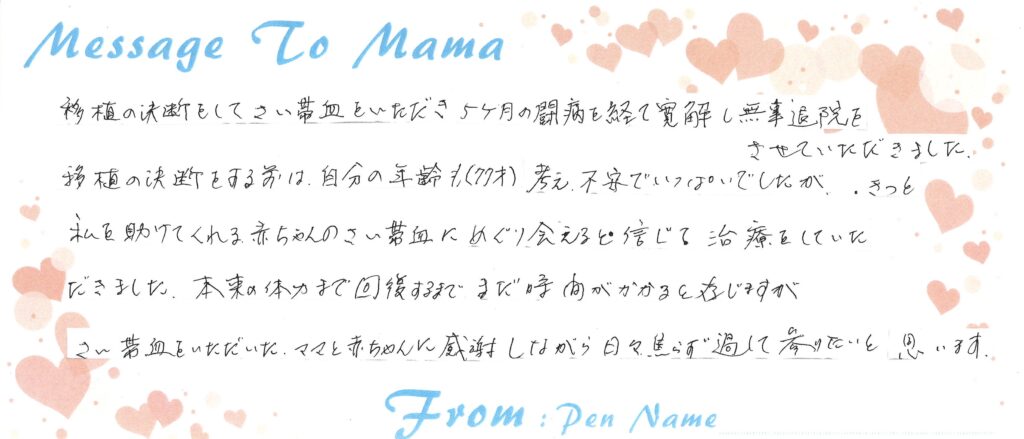 Message To Mama
移植の決断をして さい帯血をいただき 5ケ月の闘病を経て寛解し無事退院を
させていただきました。
移植の決断をする前は、自分の年齢も(77才) 考え、不安でいっぱいでしたが、きっと
私を助けてくれる赤ちゃんのさい帯血に めぐり会えると信じて 治療をしていた
だきました。本来の体力まで回復するまで まだ時間がかかると存じますが
さい帯血をいただいた、ママと赤ちゃんに感謝しながら 日々焦らず過して参りたいと 思います。
From : Pen Name